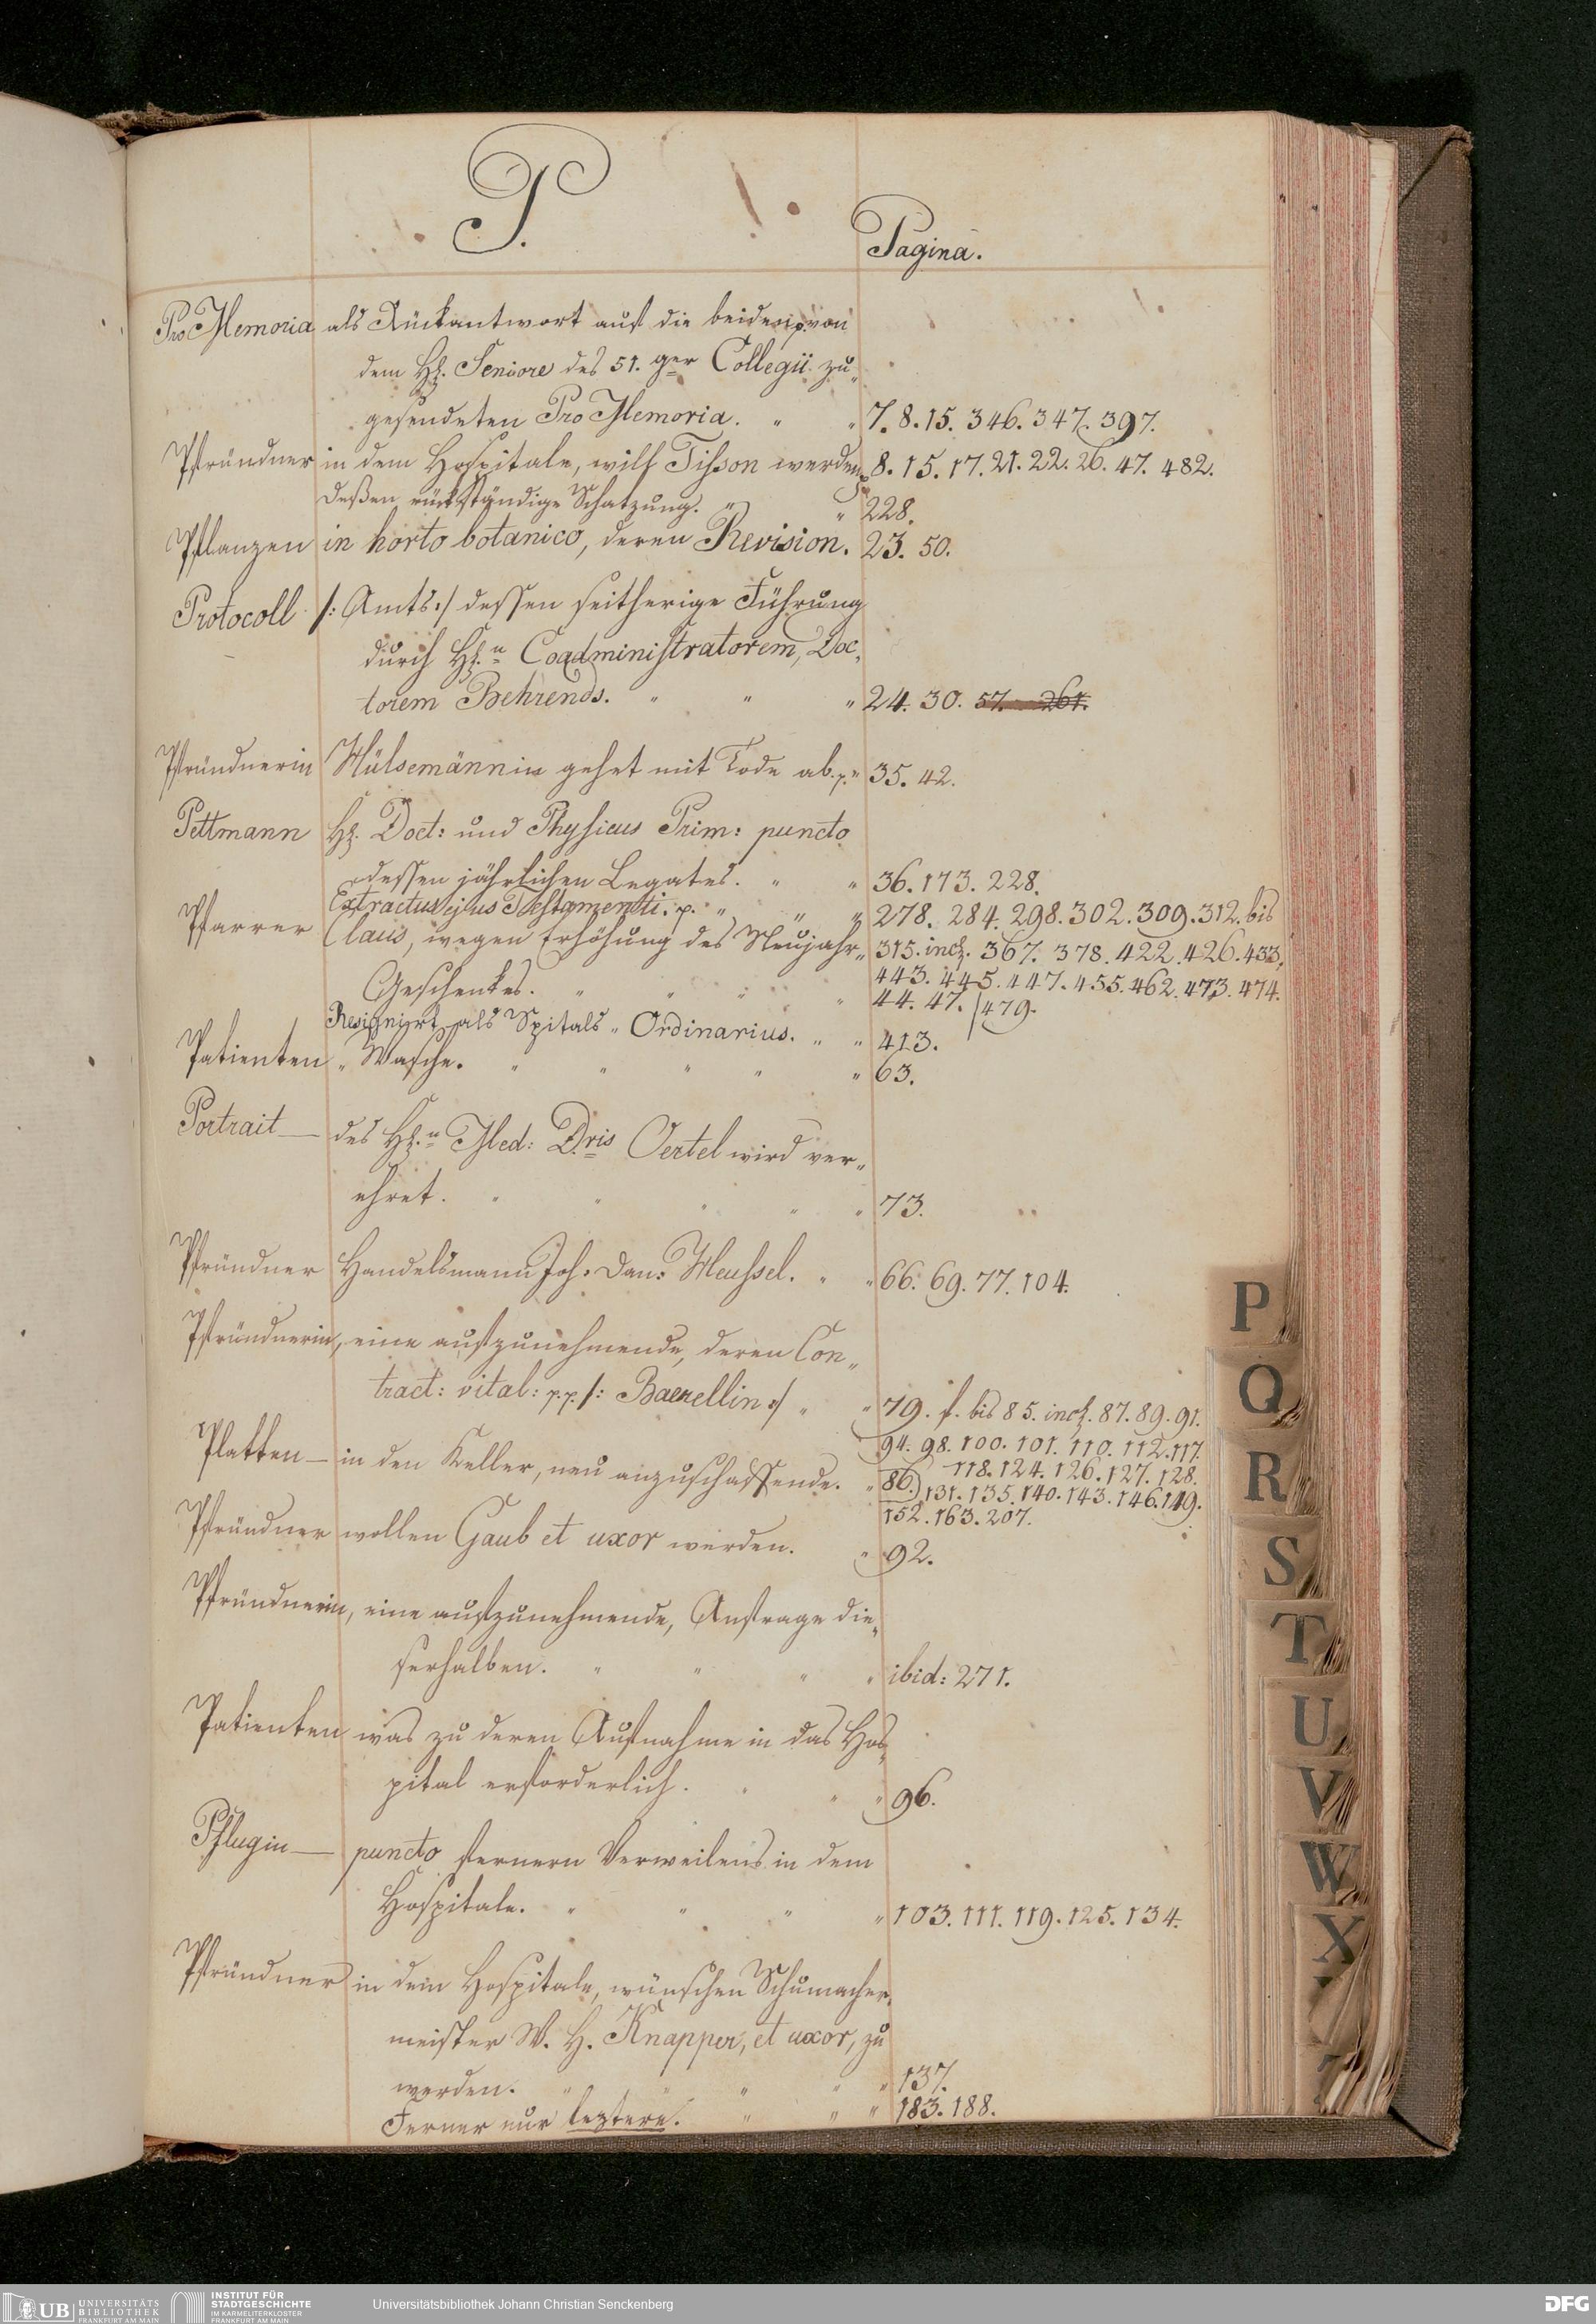 P.
Pagina.
Pro Memoria als Rückantwort auf die beiden p. von
dem HE. Seniore des 51.ger Collegii zu„
gesendeten Pro Memoria. „ „ 7. 8. 15. 346. 347. 397.
Pfründner in dem Hospitale, will Tisson werden 8. 15. 17. 21. 22. 26. 47. 482.
deßen rückständige Schatzung. „ „ 228.
Pflanzen in horto botanico, deren Revision. 23. 50.
Protocoll /: Amts :/ dessen seitherige Führung
durch HE.n Coadministratorem, Doc„
torem Behrends. „ „ „ 24. 30. 57. 261.
Pfründnerin Hülsemännin gehet mit Tode ab. p. „ 35. 42.
Pettmann HE. Doct: und Physicus Prim: puncto
dessen jährlichen Legates. „ „ 36. 173. 228.
Extractus ejus Testamenti. p. „ „ „ 278. 284. 298. 302. 309. 312. bis
315. incl. 367. 378. 422. 426. 433.
443. 445. 447. 455. 462. 473. 474.
479.
Pfarrer Claus, wegen Erhöhung des Neujahr„
Geschenkes. „ „ „ „ 44. 47.
Resignirt als Spitals„Ordinarius. „ „ 413.
Patienten „ Wasche. „ „ „ „ „ 63.
Portrait — des HE.n Med: Dris Oertel wird ver„
ehret. „ „ „ „ „ 73.
Pfründner Handelsmann Joh: Dan: Meussel. „ „ 66. 69. 77. 104.
Pfründnerin, eine aufzunehmende, deren Con„
tract: vital: p. p. /: Baerellin :/ „ „ 79. f. bis 85. incl. 87. 89. 91.
94. 98. 100. 101. 110. 112. 117.
118. 124. 126. 127. 128.
131. 135. 140. 143. 146. 149.
152. 163. 207.
Platten — in den Keller, neu anzuschaffende. „ 86.
Pfründner wollen Gaub et uxor werden. „ 92.
Pfründnerin, eine aufzunehmende, Anfrage die„
serhalben. „ „ „ „ ibid: 271.
Patienten was zu deren Aufnahme in das Hos„
pital erforderlich. „ „ „ 96.
Pflugin — puncto fernern Verweilens in dem
Hospitale. „ „ „ „ 103. 111. 119. 125. 134.
Pfründner in dem Hospitale, wünschen Schumacher„
meister W. H. Knapper, et uxor, zu
werden. „ „ „ „ „ 137.
Ferner nur leztere. „ „ „ 183. 188.
P
Q
R
S
T
U
V
W
X
UB UNIVERSITÄTS
BIBLIOTHEK
FRANKFURT AM MAIN
INSTITUT FÜR
STADTGESCHICHTE
IM KARMELITERKLOSTER
FRANKFURT AM MAIN
Universitätsbibliothek Johann Christian Senckenberg
DFG